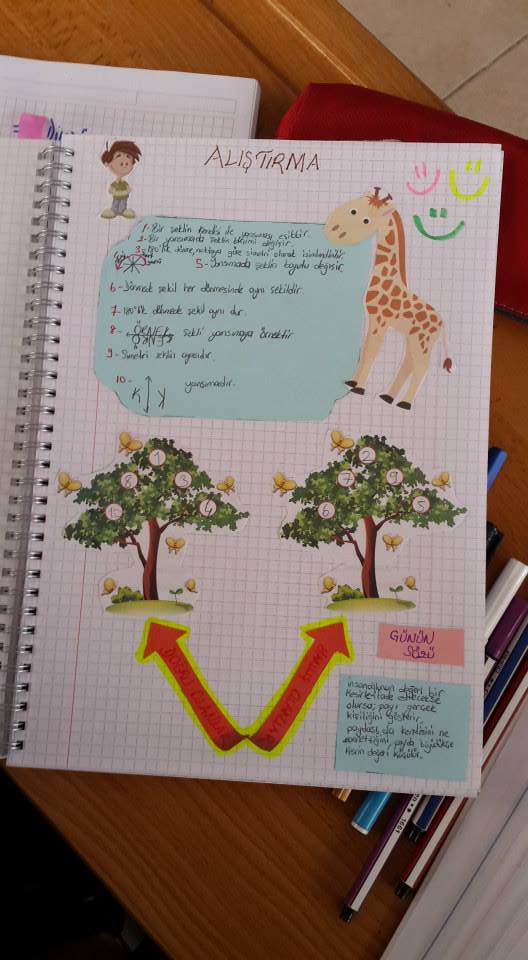 ALIŞTIRMA
1- Bir şeklin kendisi ile yansıması eşittir.
2- Bir yansımada şeklin biçimi değişir.
3- 180°lik dönme, noktaya göre simetri olarak
5- Yansımada şeklin boyutu değişir.
6- Dönmede şekil her dönmesinde aynı şekildir.
7- 180°lik dönmede şekil aynı dır.
8- ÖRNEK şekli yansımaya örnektir
ÖRNEK
9- Simetri şeklin aynısıdır.
10- K K yansımadır.
1
8 3
10 4
2
7 9
6 5
GÜNÜN
SÖZÜ
insanoğlunun değeri bir
kesirle ifade edilecekse
olursa; payı gerçek
kişiliğini gösterir,
paydası da kendisini ne
zannettiğini, payda büyüdükçe
kesrin değeri küçülür.